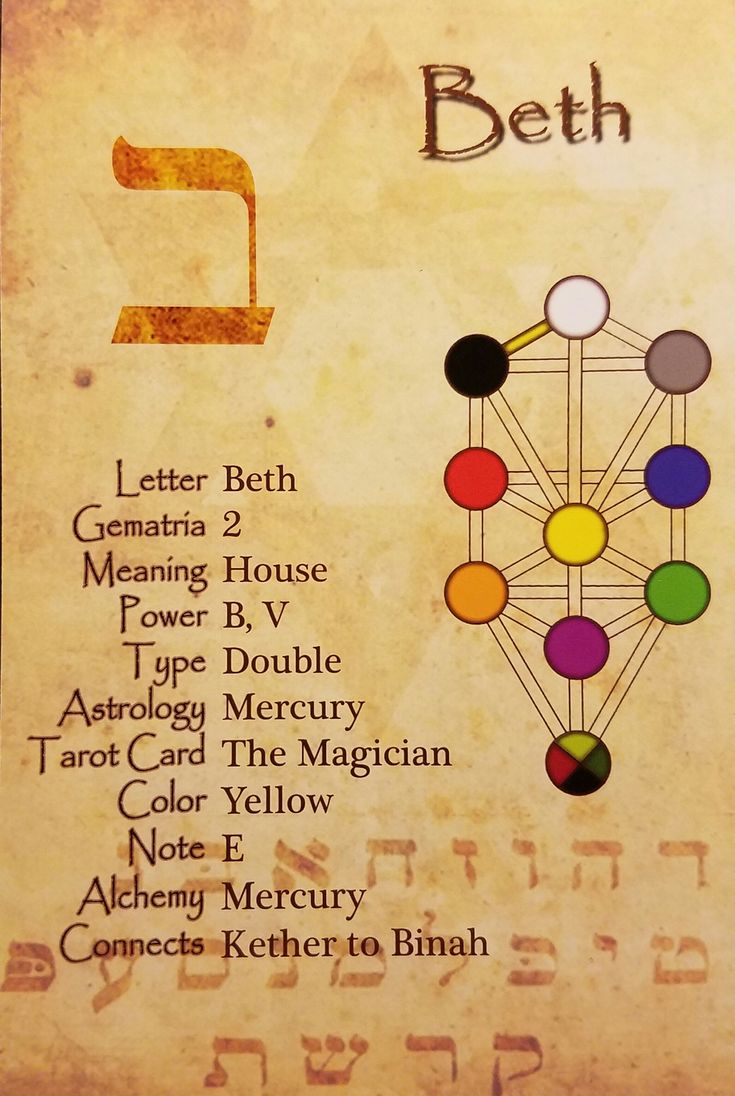 Beth
ב
Letter Beth
Gematria 2
Meaning House
Power B, V
Type Double
Astrology Mercury
Tarot Card The Magician
Color Yellow
Note E
Alchemy Mercury
Connects Kether to Binah
ד ה ו ז ח א
ט י כ ל מ נ ס ע פ
ק ר ש ת